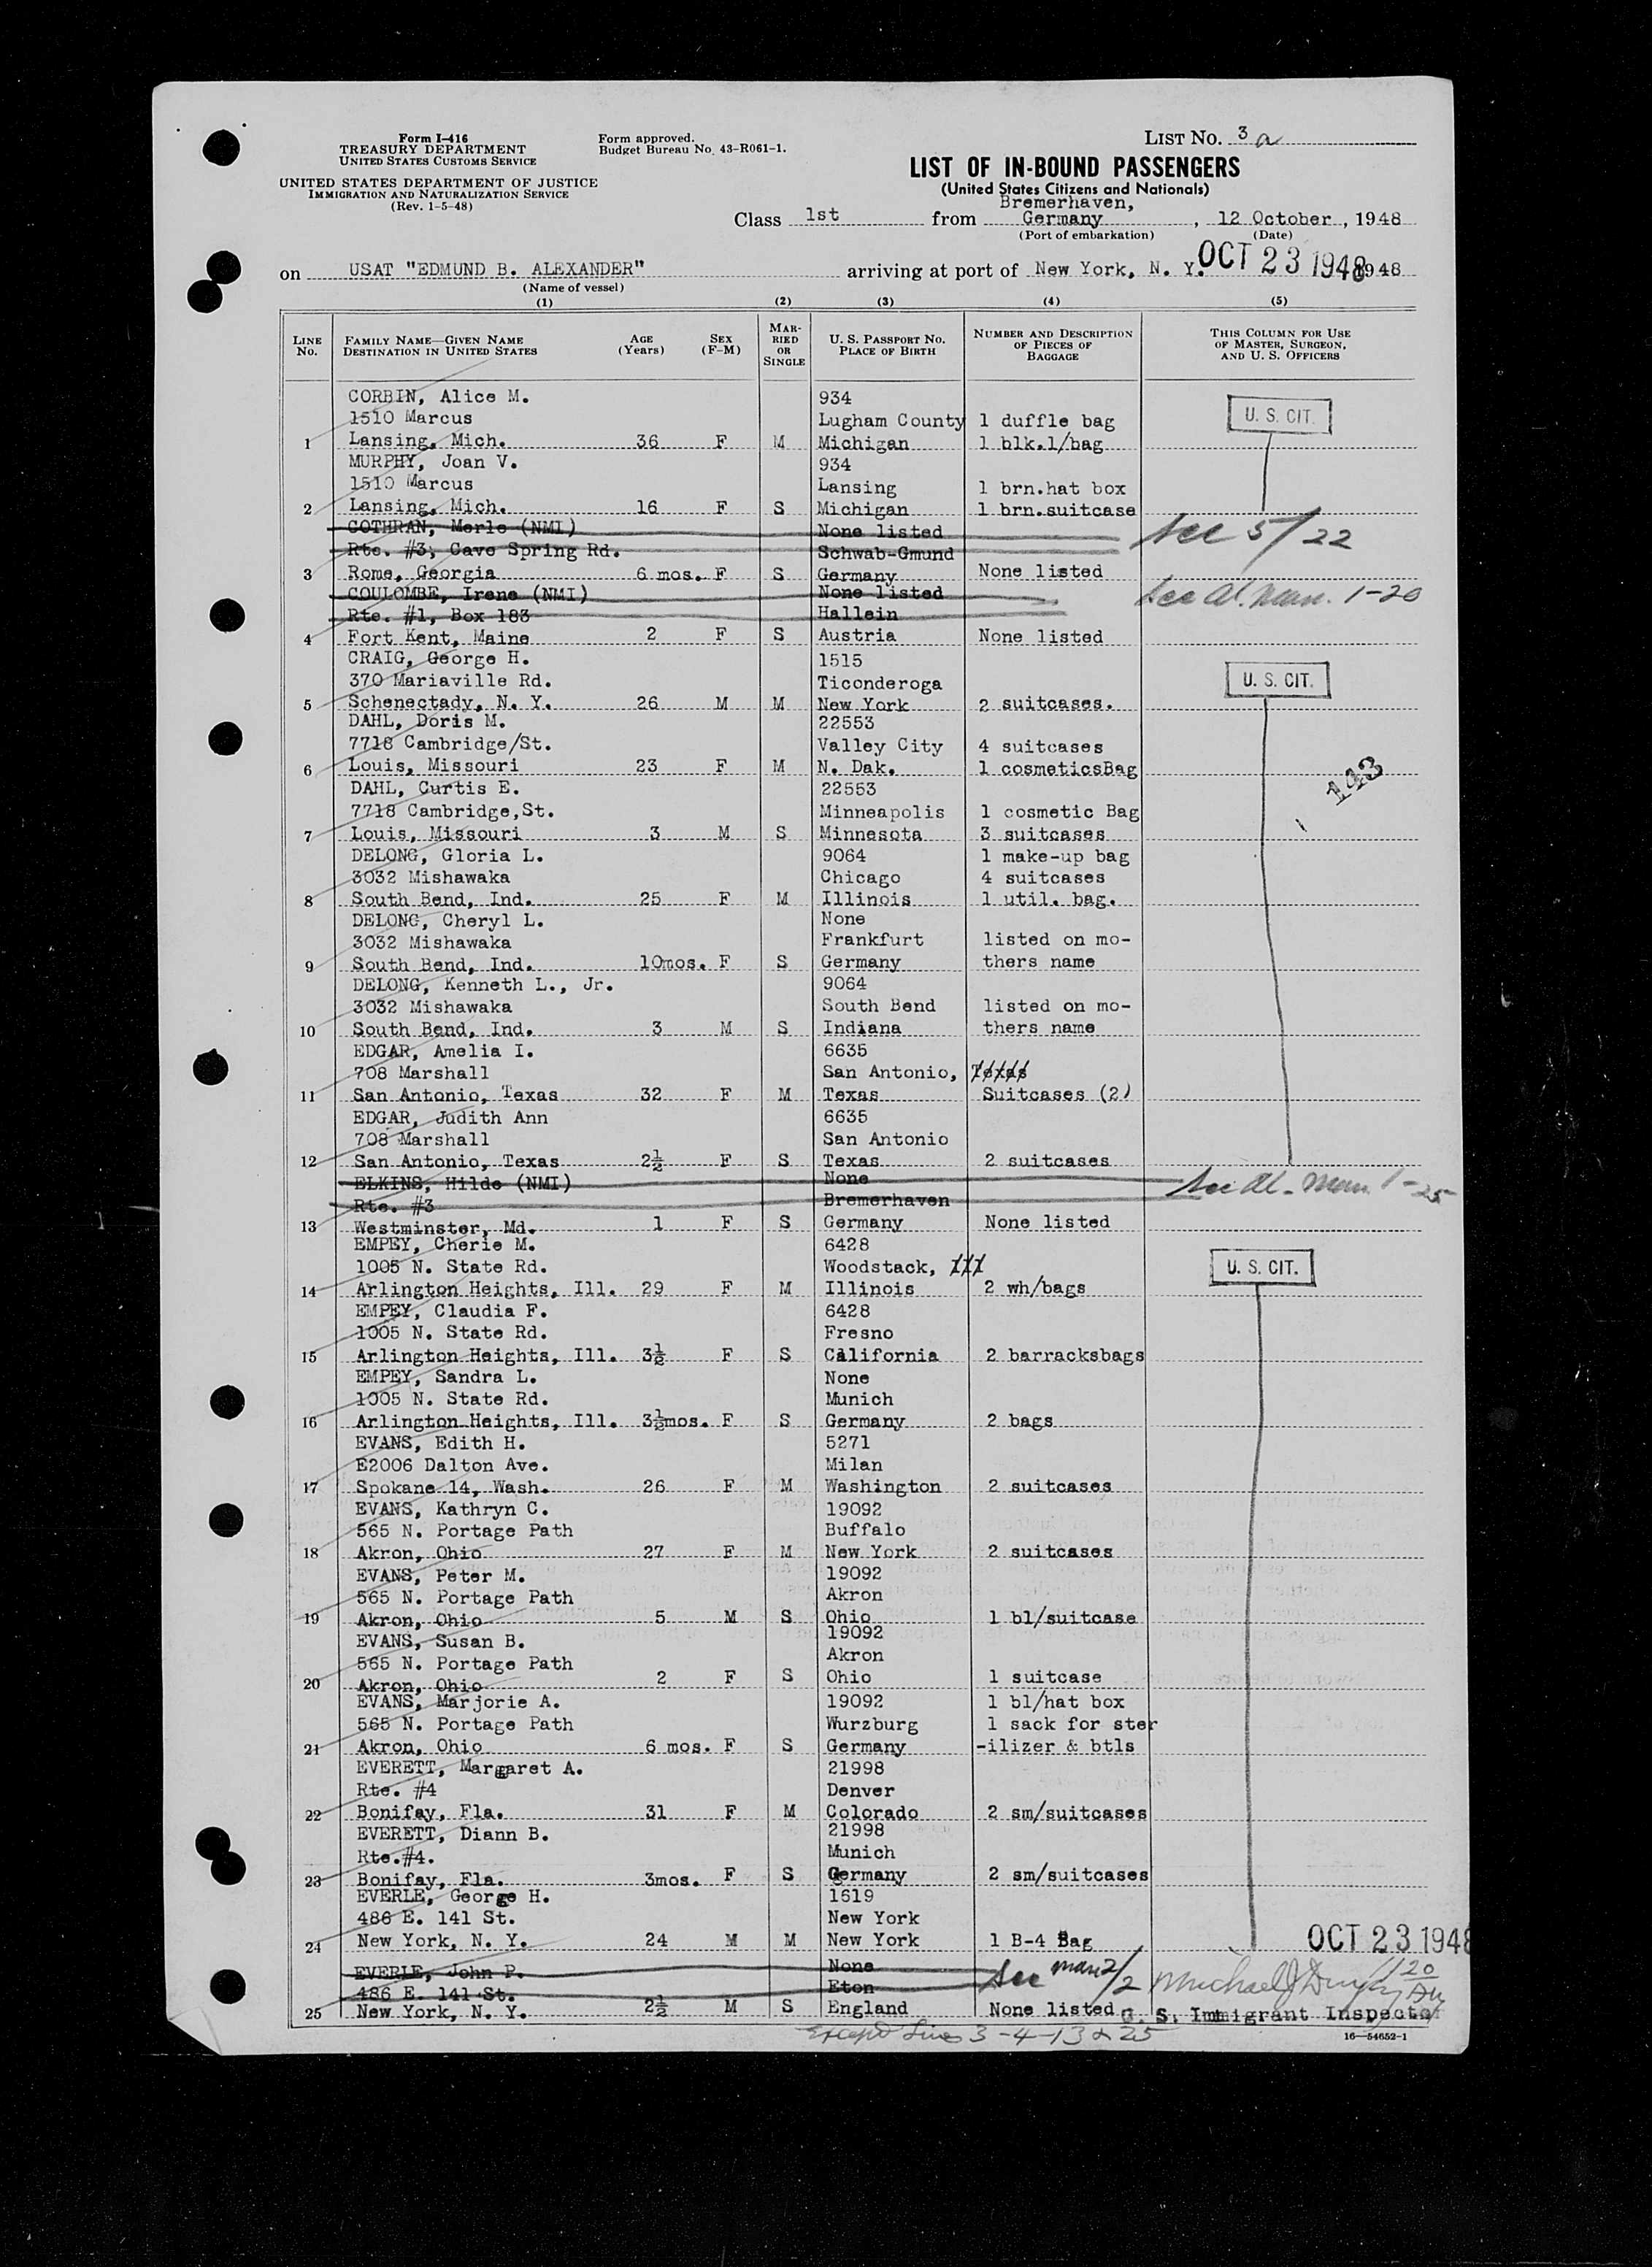 Form I-416
TREASURY DEPARTMENT
UNITED STATES CUSTOMS SERVICE
UNITED STATES DEPARTMENT OF JUSTICE
IMMIGRATION AND NATURALIZATION SERVICE
(Rev. 1-5-48)
Form approved.
Budget Bureau No. 43-R061-1.
LIST NO. 3 a
LIST OF IN-BOUND PASSENGERS
(United States Citizens and Nationals)
Bremerhaven,
Class 1st from Germany, 12 October, 1948
(Port of embarkation) (Date)
on USAT "EDMUND B. ALEXANDER" arriving at port of New York, N. Y. OCT 23 1948 1948
(Name of vessel)
(1) (2) (3) (4) (5)
LINE NO. FAMILY NAME—GIVEN NAME DESTINATION IN UNITED STATES AGE (Years) SEX (F-M) MARRIED OR SINGLE U. S. PASSPORT NO. PLACE OF BIRTH NUMBER AND DESCRIPTION OF PIECES OF BAGGAGE THIS COLUMN FOR USE OF MASTER, SURGEON, AND U. S. OFFICERS
CORBIN, Alice M. 934
1510 Marcus Lugham County 1 duffle bag U. S. CIT.
1 Lansing, Mich. 36 F M Michigan 1 blk.l/bag
MURPHY, Joan V. 934
1510 Marcus Lansing 1 brn.hat box
2 Lansing, Mich. 16 F S Michigan 1 brn.suitcase
COTHRAN, Merle (NMI) None listed See 5/22
Rte. #3, Cave Spring Rd. Schwab-Gmund
3 Rome, Georgia 6 mos. F S Germany None listed
COULOMBE, Irene (NMI) None listed See Al. Man. 1-20
Rte. #1, Box 183 Hallein
4 Fort Kent, Maine 2 F S Austria None listed
CRAIG, George H. 1515
370 Mariaville Rd. Ticonderoga U. S. CIT.
5 Schenectady, N. Y. 26 M M New York 2 suitcases.
DAHL, Doris M. 22553
7718 Cambridge/St. Valley City 4 suitcases
6 Louis, Missouri 23 F M N. Dak. 1 cosmeticsBag
143
DAHL, Curtis E. 22553
7718 Cambridge,St. Minneapolis 1 cosmetic Bag
7 Louis, Missouri 3 M S Minnesota 3 suitcases
DELONG, Gloria L. 9064 1 make-up bag
3032 Mishawaka Chicago 4 suitcases
8 South Bend, Ind. 25 F M Illinois 1 util. bag.
DELONG, Cheryl L. None
3032 Mishawaka Frankfurt listed on mo-
9 South Bend, Ind. 10mos. F S Germany thers name
DELONG, Kenneth L., Jr. 9064
3032 Mishawaka South Bend listed on mo-
10 South Bend, Ind. 3 M S Indiana thers name
EDGAR, Amelia I. 6635
708 Marshall San Antonio, Texas
11 San Antonio, Texas 32 F M Texas Suitcases (2)
EDGAR, Judith Ann 6635
708 Marshall San Antonio
12 San Antonio, Texas 2½ F S Texas 2 suitcases
ELKINS, Hilde (NMI) None See Al. Man. 1-25
Rte. #3 Bremerhaven
13 Westminster, Md. 1 F S Germany None listed
EMPEY, Cherie M. 6428
1005 N. State Rd. Woodstack, U. S. CIT.
14 Arlington Heights, Ill. 29 F M Illinois 2 wh/bags
EMPEY, Claudia F. 6428
1005 N. State Rd. Fresno
15 Arlington Heights, Ill. 3½ F S California 2 barracksbags
EMPEY, Sandra L. None
1005 N. State Rd. Munich
16 Arlington Heights, Ill. 3½mos. F S Germany 2 bags
EVANS, Edith H. 5271
E2006 Dalton Ave. Milan
17 Spokane 14, Wash. 26 F M Washington 2 suitcases
EVANS, Kathryn C. 19092
565 N. Portage Path Buffalo
18 Akron, Ohio 27 F M New York 2 suitcases
EVANS, Peter M. 19092
565 N. Portage Path Akron
19 Akron, Ohio 5 M S Ohio 1 bl/suitcase
EVANS, Susan B. 19092
565 N. Portage Path Akron
20 Akron, Ohio 2 F S Ohio 1 suitcase
EVANS, Marjorie A. 19092 1 bl/hat box
565 N. Portage Path Wurzburg 1 sack for ster
21 Akron, Ohio 6 mos. F S Germany -ilizer & btls
EVERETT, Margaret A. 21998
Rte. #4 Denver
22 Bonifay, Fla. 31 F M Colorado 2 sm/suitcases
EVERETT, Diann B. 21998
Rte.#4. Munich
23 Bonifay, Fla. 3mos. F S Germany 2 sm/suitcases
EVERLE, George H. 1619
486 E. 141 St. New York
24 New York, N. Y. 24 M M New York 1 B-4 Bag OCT 23 1948
EVERLE, John P. None See man 2/2
486 E. 141 St. Eton
25 New York, N. Y. 2½ M S England None listed U. S. Immigrant Inspector
Except Lines 3-4-13 & 25
16—54652-1